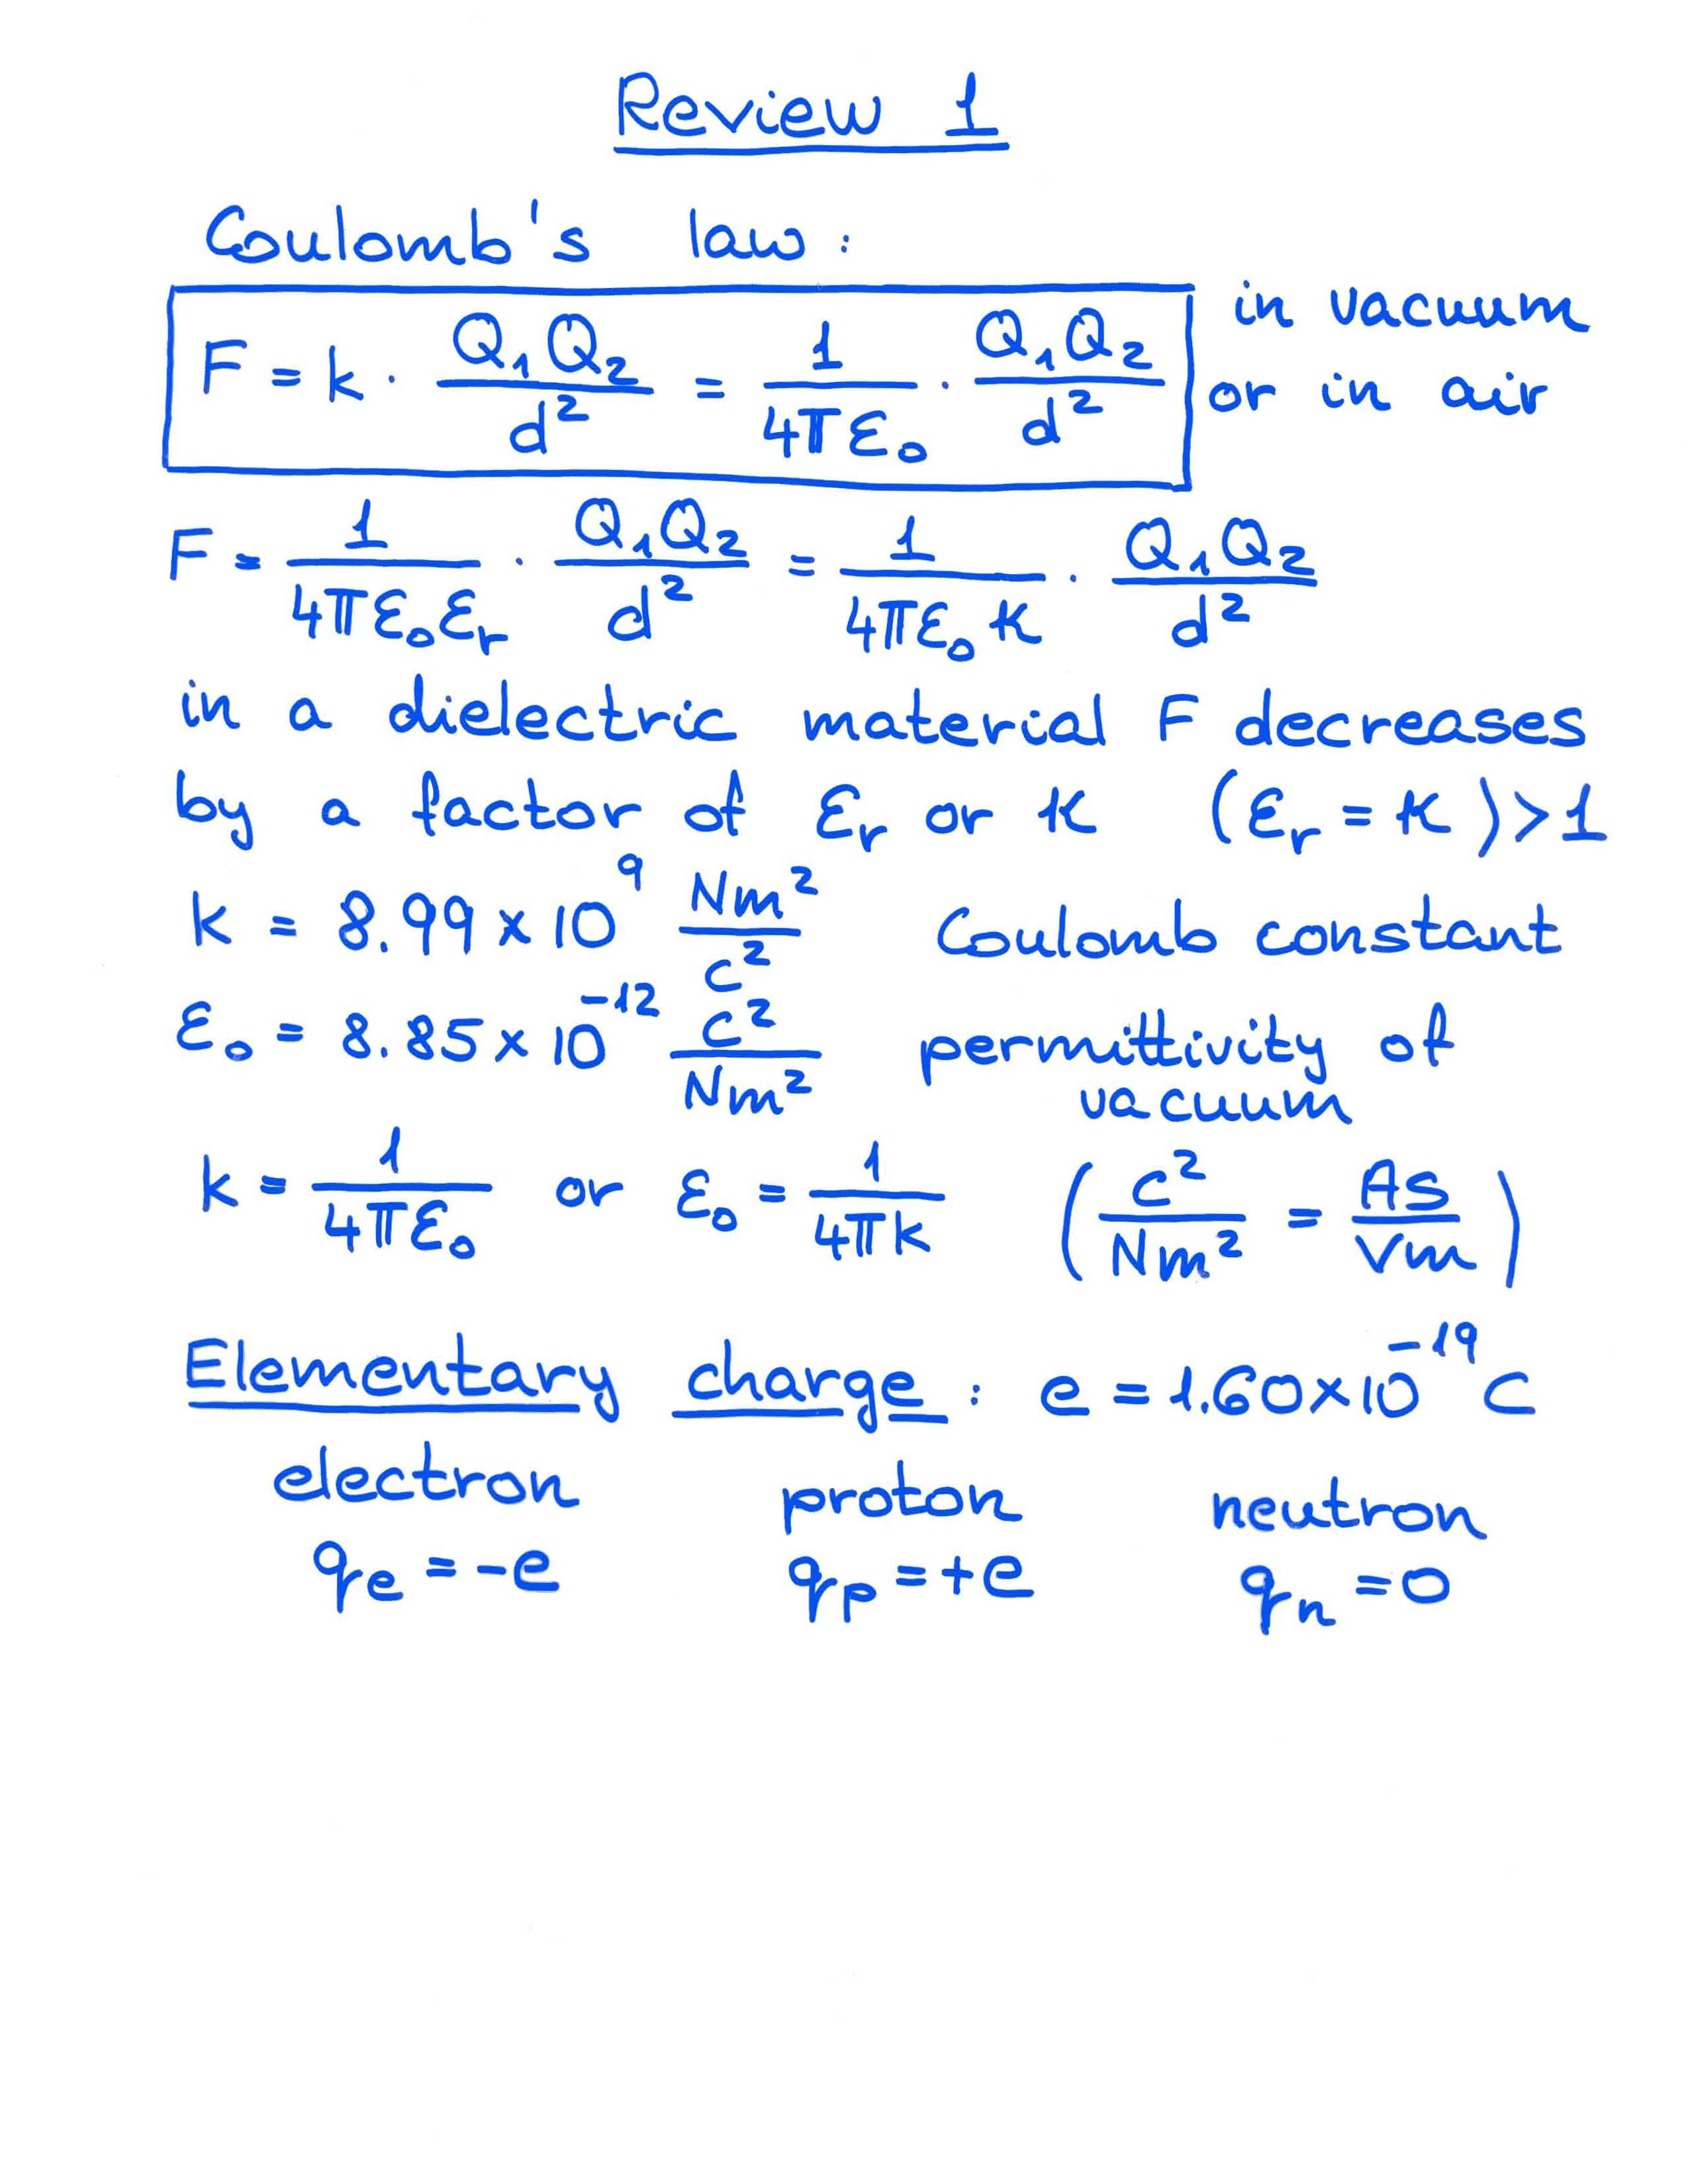 Review 1
Coulomb's law:
F = k · Q₁Q₂/d² = 1/4πε₀ · Q₁Q₂/d² in vacuum or in air
F = 1/4πε₀εᵣ · Q₁Q₂/d² = 1/4πε₀κ · Q₁Q₂/d²
in a dielectric material F decreases
by a factor of εᵣ or κ (εᵣ = κ) > 1
k = 8.99 × 10⁹ Nm²/C² Coulomb constant
ε₀ = 8.85 × 10⁻¹² C²/Nm² permittivity of vacuum
k = 1/4πε₀ or ε₀ = 1/4πk (C²/Nm² = As/Vm)
Elementary charge: e = 1.60 × 10⁻¹⁹ C
electron proton neutron
qₑ = -e qₚ = +e qₙ = 0